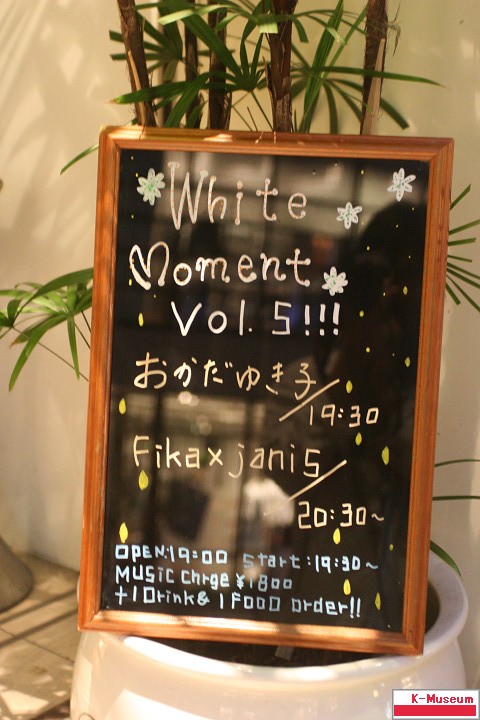 White
Moment
Vol. 5!!!
おかだゆき子
19:30
Fika×janis
20:30~
OPEN:19:00 start:19:30~
MUSiC Chrge ¥1800
+1 Drink& 1 FOOD order!!
K-Museum